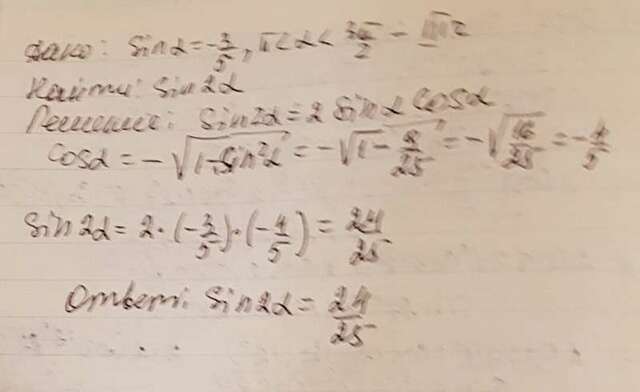 Дано: sinα = -3/5, π<α< 3π/2 - III ч
Найти: sin2α
Решение: sin2α = 2 sinα cosα
cosα = -√(1-sin²α) = -√(1-9/25) = -√(16/25) = -4/5
sin2α = 2·(-3/5)·(-4/5) = 24/25
Ответ: sin2α = 24/25